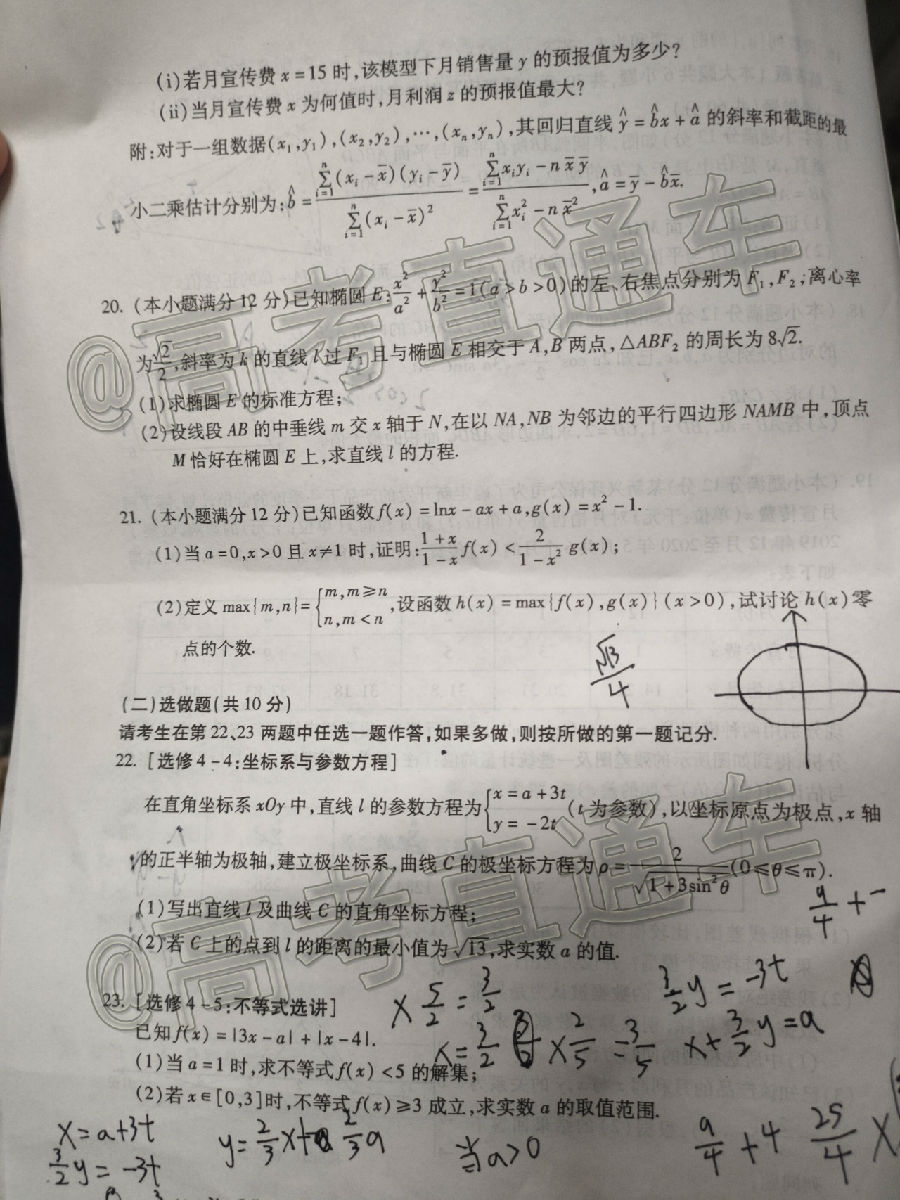 (i)若月宣传费x=15时,该模型下月销售量y的预报值为多少?
(ii)当月宣传费x为何值时,月利润z的预报值最大?
附:对于一组数据(x₁,y₁),(x₂,y₂),…,(xₙ,yₙ),其回归直线ŷ=b̂x+â的斜率和截距的最
小二乘估计分别为:b̂=∑ⁿᵢ₌₁(xᵢ-x̄)(yᵢ-ȳ)/∑ⁿᵢ₌₁(xᵢ-x̄)²=(∑ⁿᵢ₌₁xᵢyᵢ-nx̄ȳ)/(∑ⁿᵢ₌₁xᵢ²-nx̄²),â=ȳ-b̂x̄.
20.(本小题满分12分)已知椭圆E:x²/a²+y²/b²=1(a>b>0)的左、右焦点分别为F₁,F₂;离心率
为√2/2,斜率为k的直线l过F₁且与椭圆E相交于A,B两点,△ABF₂的周长为8√2.
(1)求椭圆E的标准方程;
(2)设线段AB的中垂线m交x轴于N,在以NA,NB为邻边的平行四边形NAMB中,顶点
M恰好在椭圆E上,求直线l的方程.
21.(本小题满分12分)已知函数f(x)=lnx-ax+a,g(x)=x²-1.
(1)当a=0,x>0且x≠1时,证明:(1+x)/(1-x)f(x)<2/(1-x²)g(x);
(2)定义max{m,n}={m,m≥n n,m<n,设函数h(x)=max{f(x),g(x)}(x>0),试讨论h(x)零
点的个数.
√13/4
(二)选做题(共10分)
请考生在第22、23两题中任选一题作答,如果多做,则按所做的第一题记分.
22.[选修4-4:坐标系与参数方程]
在直角坐标系xOy中,直线l的参数方程为{x=a+3t y=-2t(t为参数),以坐标原点为极点,x轴
的正半轴为极轴,建立极坐标系,曲线C的极坐标方程为ρ=2/√(1+3sin²θ)(0≤θ≤π).
(1)写出直线l及曲线C的直角坐标方程;
(2)若C上的点到l的距离的最小值为√13,求实数a的值.
23.[选修4-5:不等式选讲]
已知f(x)=|3x-a|+|x-4|.
(1)当a=1时,求不等式f(x)<5的解集;
(2)若x∈[0,3]时,不等式f(x)≥3成立,求实数a的取值范围.
x 5/2=3/2
3/2y=-3t
x=3/2
x 2/5=3/5
x+3/2y=a
x=a+3t
3/2y=-3t
当a>0
@高考直通车
@高考直通车